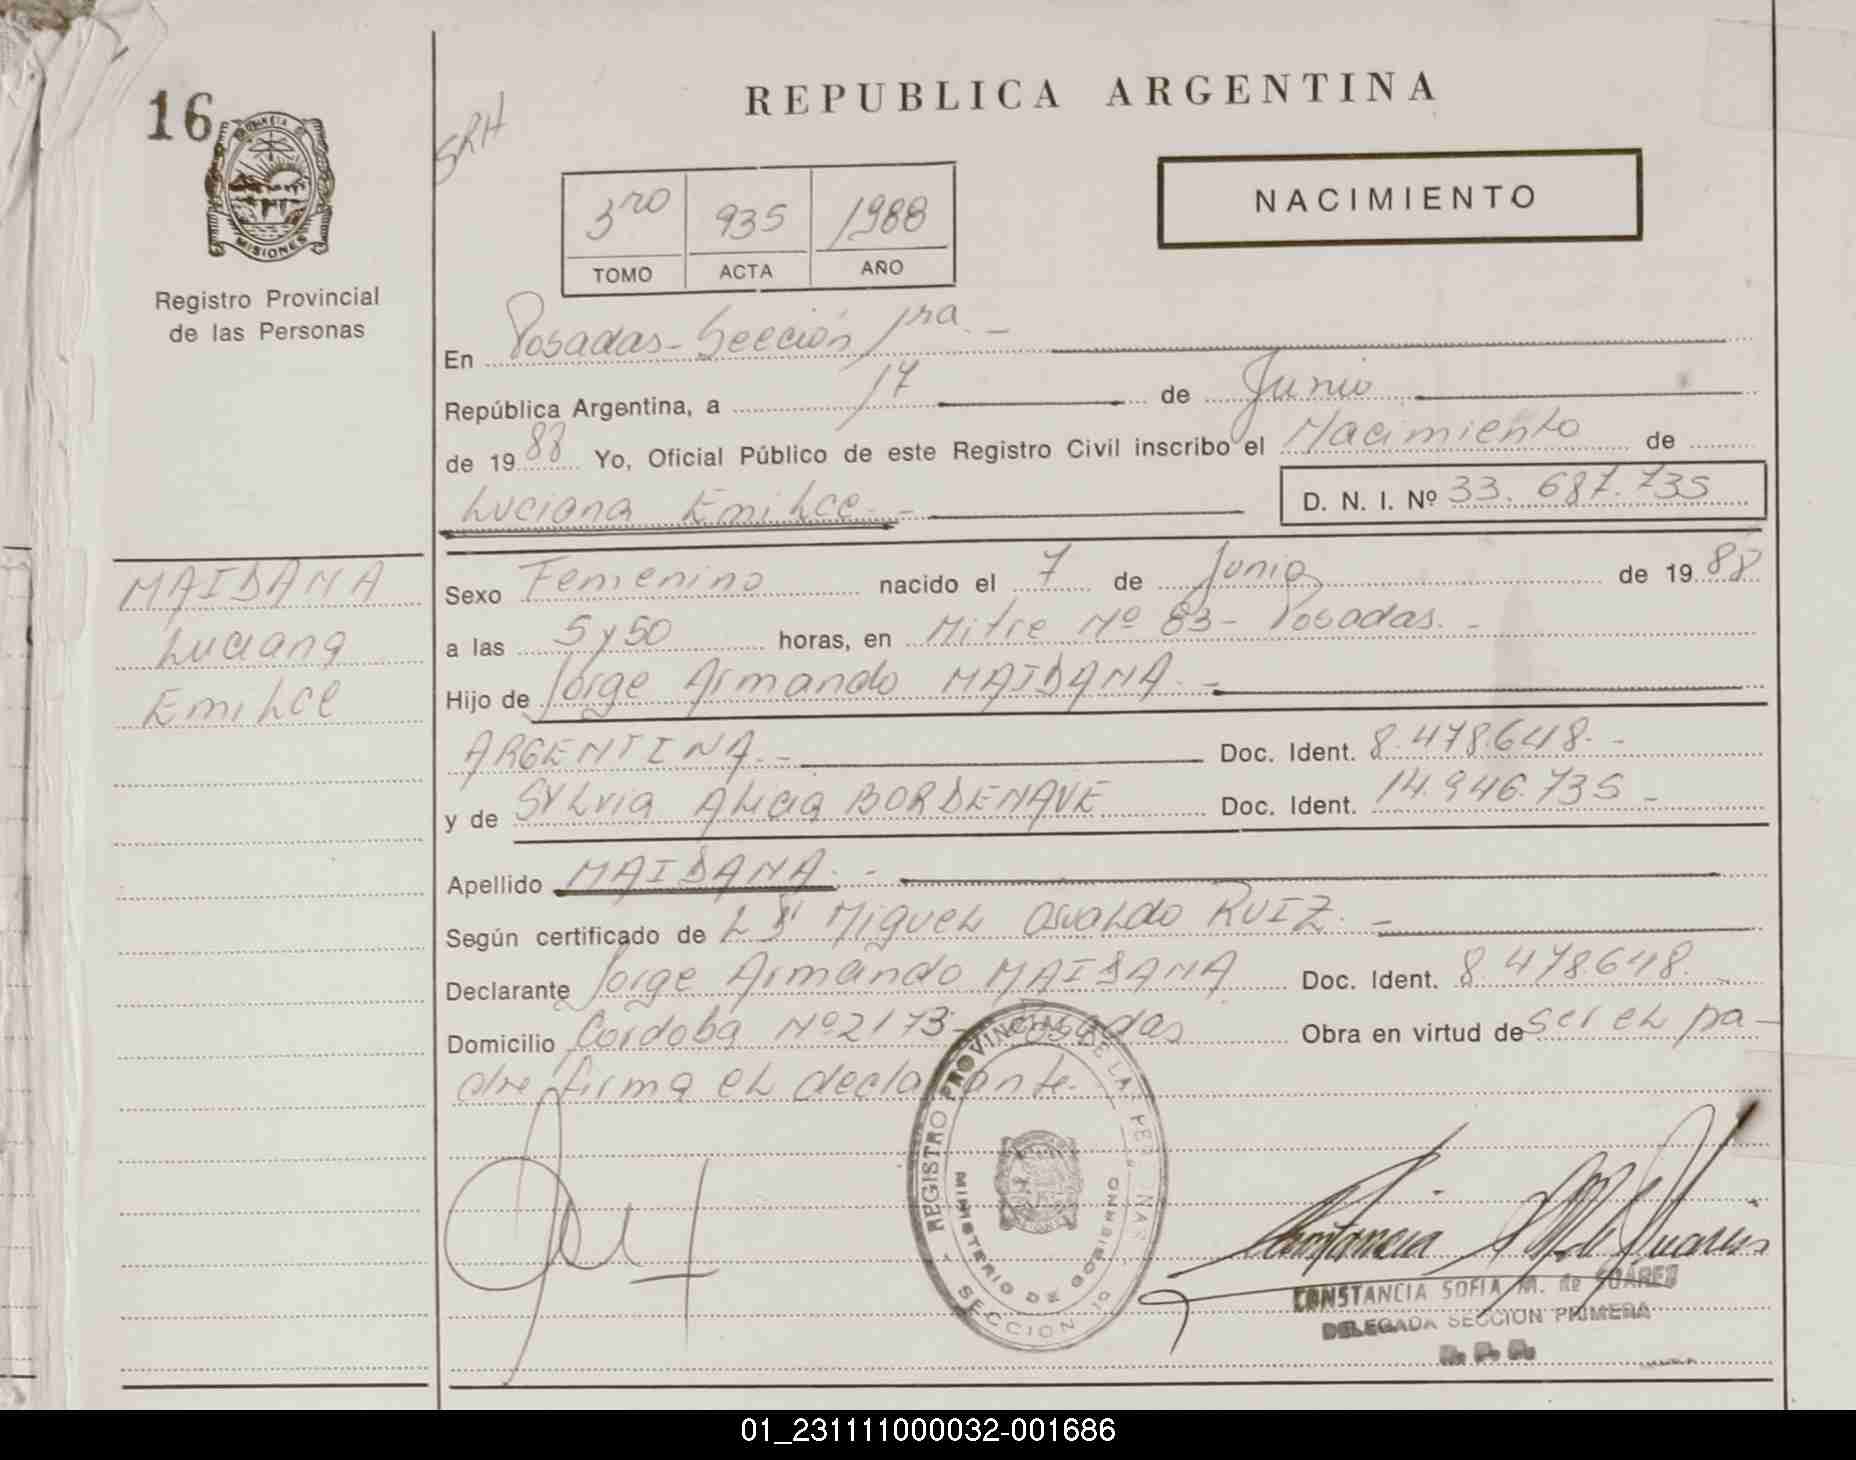 16
PROVINCIA DE
MISIONES
Registro Provincial
de las Personas
SRH
REPUBLICA ARGENTINA
3ro 935 1988
TOMO ACTA AÑO
NACIMIENTO
En Posadas - Sección 1ra. -
República Argentina, a 17 de Junio
de 1988 Yo, Oficial Público de este Registro Civil inscribo el Nacimiento de
Luciana Emilce. - D. N. I. Nº 33.687.735
MAIDANA
Luciana
Emilce
Sexo Femenino nacido el 7 de Junio de 1988
a las 5 y 50 horas, en Mitre Nº 83 - Posadas. -
Hijo de Jorge Armando MAIDANA. -
ARGENTINA. - Doc. Ident. 8.478.648. -
y de Sylvia Alicia BORDENAVE Doc. Ident. 14.946.735 -
Apellido MAIDANA. -
Según certificado de Miguel Osvaldo RUIZ. -
Declarante Jorge Armando MAIDANA Doc. Ident. 8.478.648. -
Domicilio Cordoba Nº 2173 - Posadas Obra en virtud de ser el pa-
dre firma el declarante.
REGISTRO PROVINCIAL DE LAS PERSONAS
MINISTERIO DE GOBIERNO
SECCION 1º
CONSTANCIA SOFIA M. de SUÁREZ
DELEGADA SECCION PRIMERA
R. P. P.
01_231111000032-001686